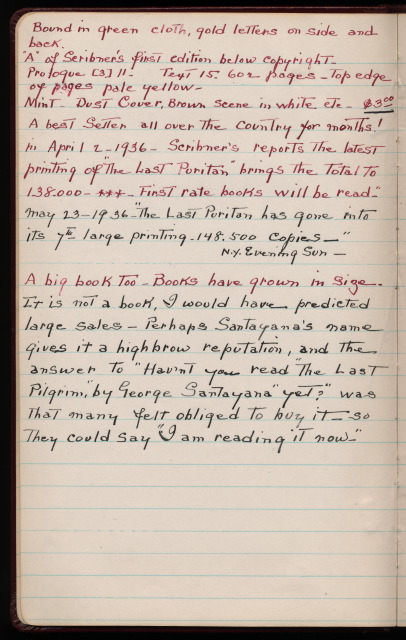 Bound in green cloth, gold letters on side and
back.
"A" of Scribner's first edition below copyright-
Prologue [3] 11- Text 15. 602 pages - Top edge
of pages pale yellow-
Mint - Dust Cover, Brown scene in white etc - $3.00
A best Seller all over the Country for months!
in April 2 - 1936 - Scribner's reports the latest
printing of "The Last Puritan" brings the total to
138.000 - *** - First rate books will be read."
may 23-1936-"The Last Puritan has gone into
its 7th large printing - 148.500 copies-"
N.Y. Evening Sun -
A big book too - Books have grown in size.
It is not a book, I would have predicted
large sales - Perhaps Santayana's name
gives it a highbrow reputation, and the
answer to "Hav'nt you read "The Last
Pilgrim," by George Santayana" yet?" was
that many felt obliged to buy it - so
they could say "I am reading it now-"